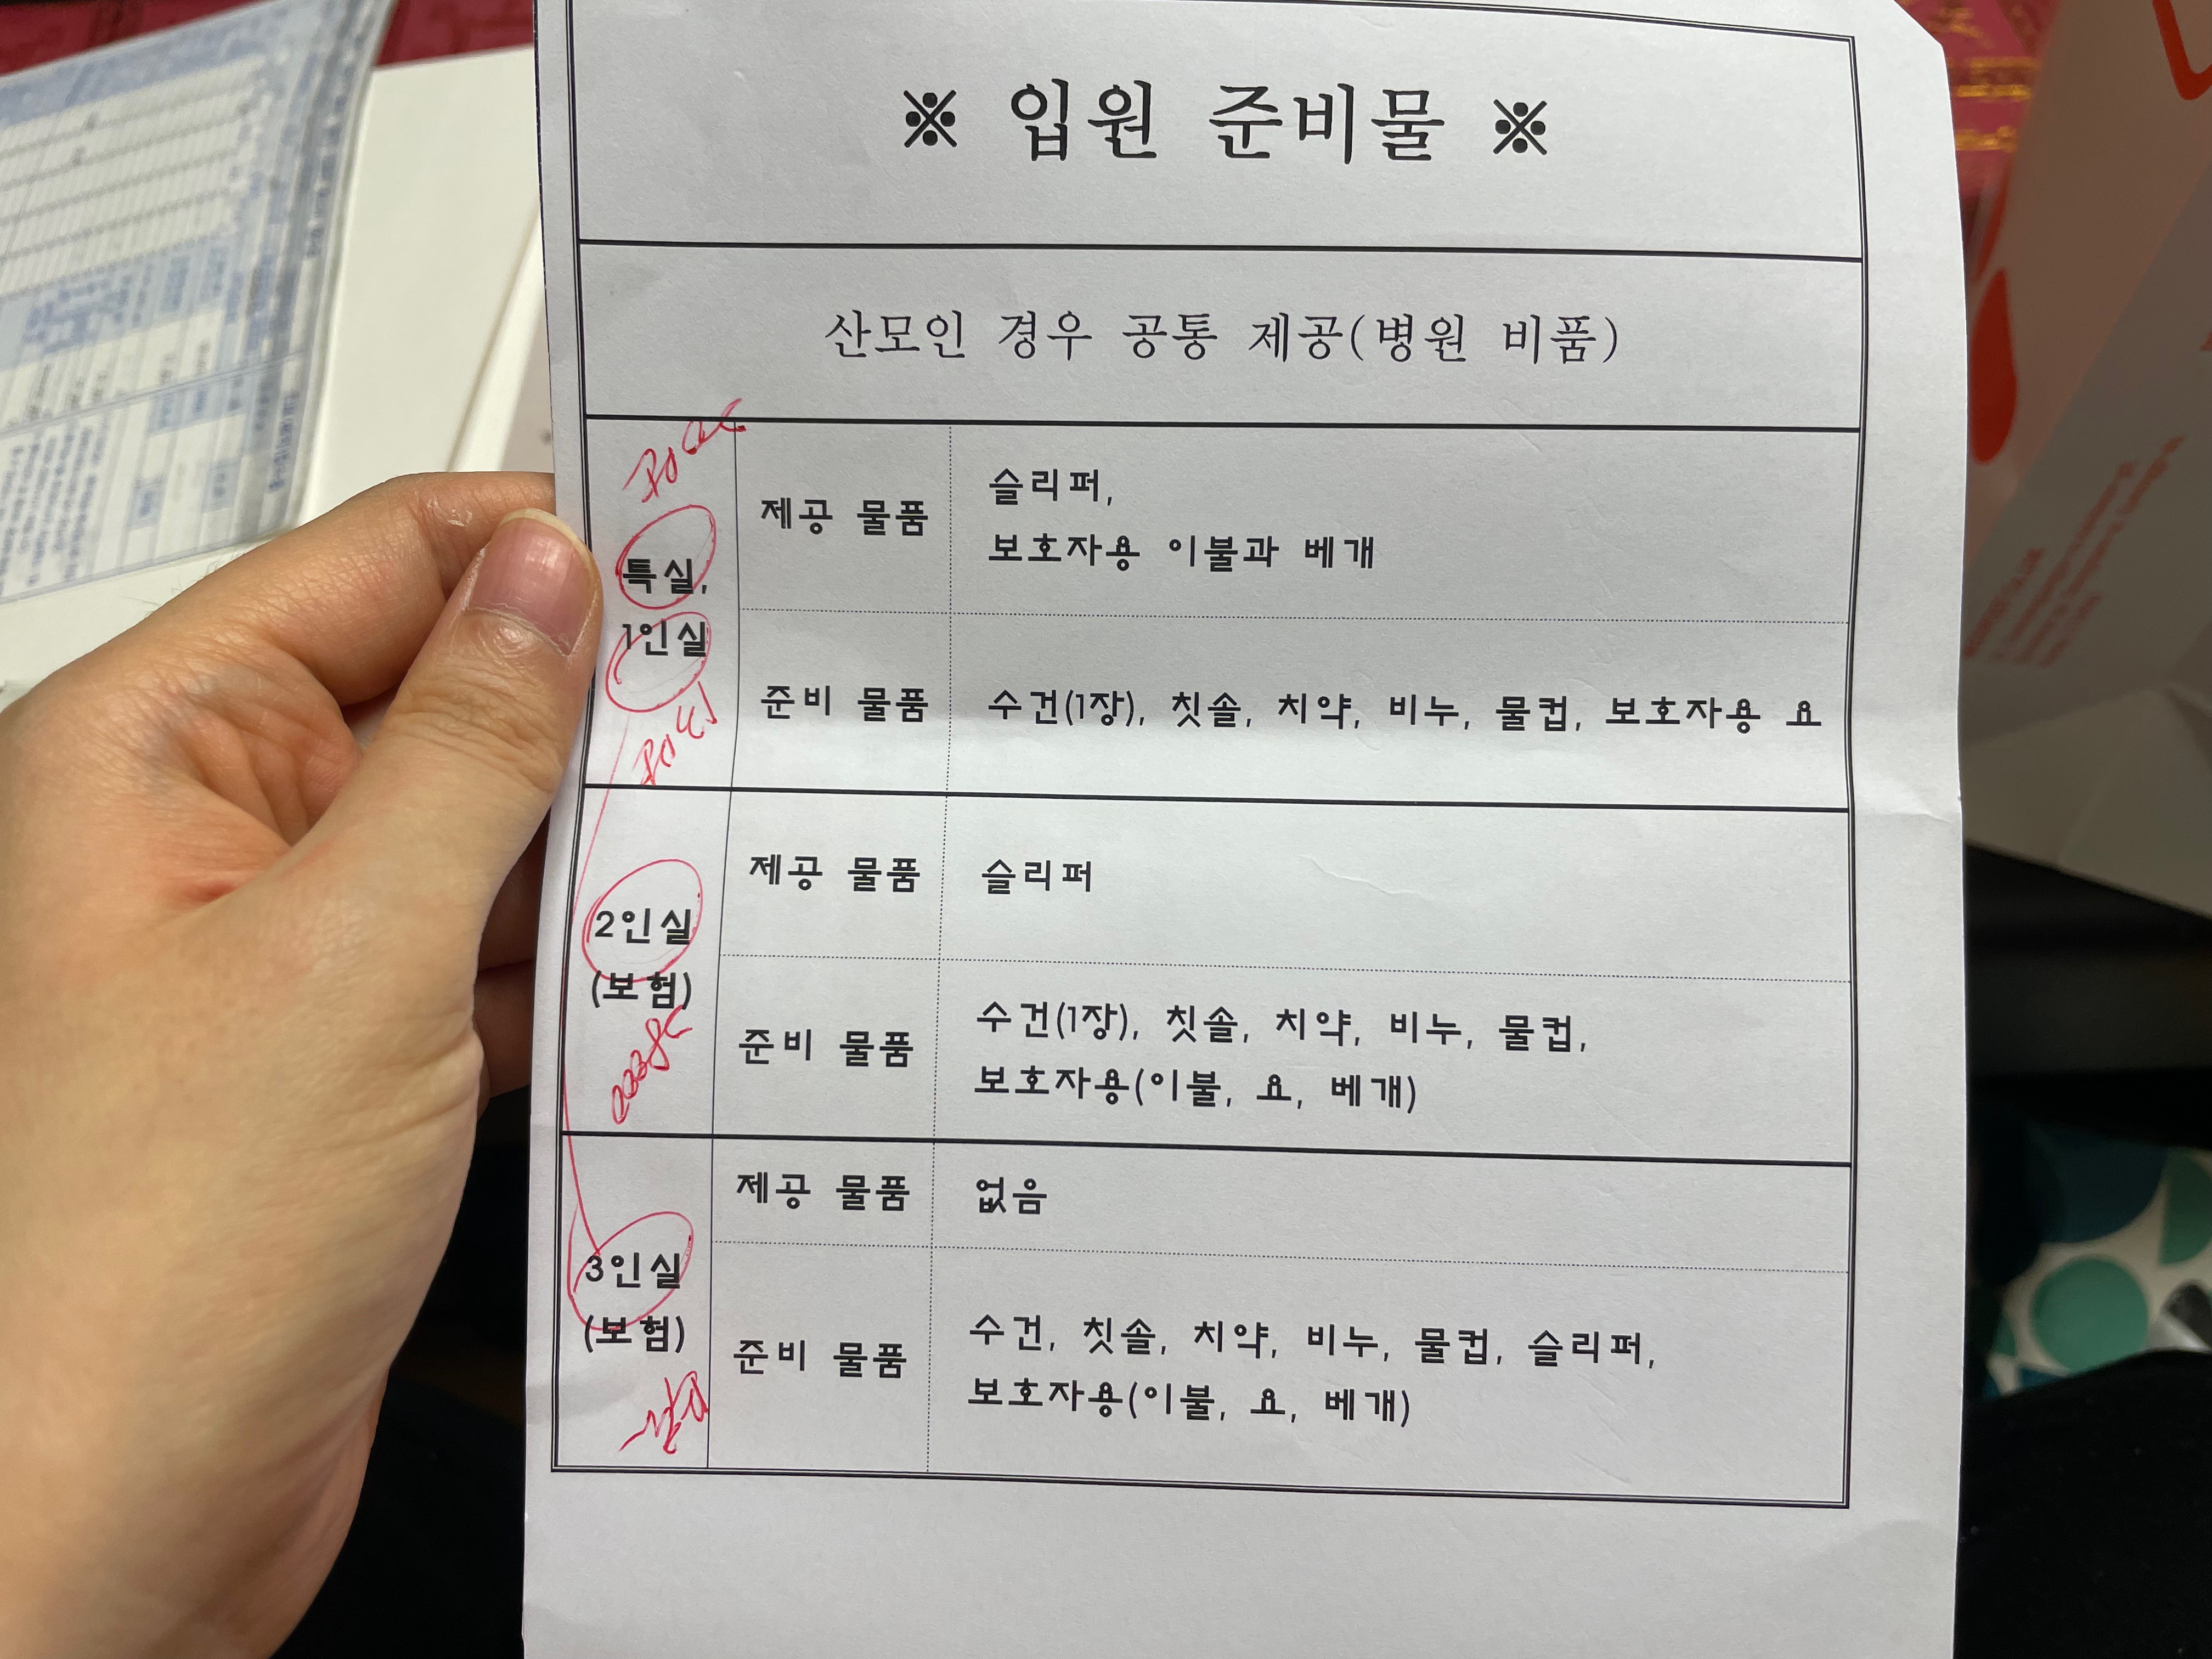 ※ 입원 준비물 ※
산모인 경우 공통 제공(병원 비품)
특실,
1인실
제공 물품
슬리퍼,
보호자용 이불과 베개
준비 물품
수건(1장), 칫솔, 치약, 비누, 물컵, 보호자용 요
2인실
(보험)
제공 물품
슬리퍼
준비 물품
수건(1장), 칫솔, 치약, 비누, 물컵,
보호자용(이불, 요, 베개)
3인실
(보험)
제공 물품
없음
준비 물품
수건, 칫솔, 치약, 비누, 물컵, 슬리퍼,
보호자용(이불, 요, 베개)